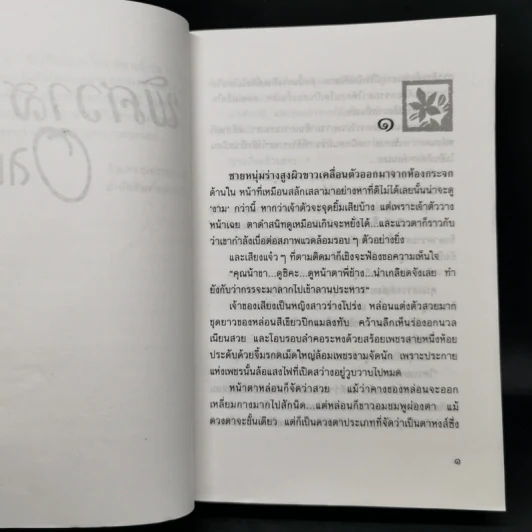 ๑
ชายหนุ่มร่างสูงผิวขาวเคลื่อนตัวออกมาจากห้องกระจก
ด้านใน หน้าที่เหมือนสลักเสลามาอย่างหาที่ติไม่ได้เลยนั้นน่าจะดู
‘งาม’ กว่านี้ หากว่าเจ้าตัวจะจุดยิ้มเสียบ้าง แต่เพราะเจ้าตัววาง
หน้าเฉย ตาดำสนิทดูเหมือนเกินจะหยั่งได้...และแววตาก็ราวกับ
ว่าเขากำลังเบื่อต่อสภาพแวดล้อมรอบๆ ตัวอย่างยิ่ง
และเสียงแจ๋วๆ ที่ตามติดมาก็เชิงจะฟ้องขอความเห็นใจ
“คุณน้าขา...ดูซิคะ...ดูหน้าตาพี่ช้าง...น่าเกลียดจังเลย ทำ
ยังกับว่ากรรจะมาลากไปเข้าลานประหาร”
เจ้าของเสียงเป็นหญิงสาวร่างโปร่ง หล่อนแต่งตัวสวยมาก
ชุดยาวของหล่อนสีเขียวปีกแมลงทับ คว้านลึกเห็นร่องอกนวล
เนียนสวย และโอบรอบลำคอระหงด้วยสร้อยเพชรสายหนึ่งห้อย
ประดับด้วยจี้มรกตเม็ดใหญ่ล้อมเพชรงามจัดนัก เพราะประกาย
แห่งเพชรนั้นล้อแสงไฟที่เปิดสว่างอยู่วูบวาบไปหมด
หน้าตาหล่อนก็จัดว่าสวย แม้ว่าคางของหล่อนจะออก
เหลี่ยมกางมากไปสักนิด...แต่หล่อนก็ขาวอมชมพูผ่องตา แม้
ดวงตาจะชั้นเดียว แต่ก็เป็นดวงตาประเภทที่จัดว่าเป็นตาหงส์ซึ่ง
๑